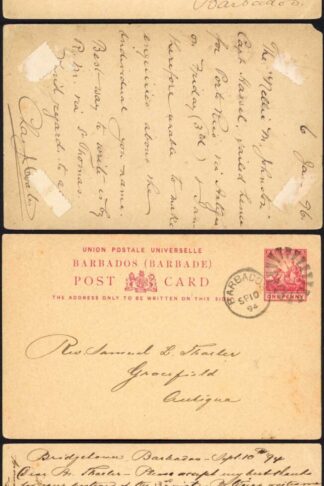 Barbados.
6 Jan 96.
The "Nellie M Johnston"
Capt Hassel, sailed hence
for Porto Rico via Antigua
on Friday (3rd) & I am
therefore unable to make
enquiries about the
individual you name.
Best way to write is by
R.M. via St Thomas.
Kind regards to
UNION POSTALE UNIVERSELLE
BARBADOS (BARBADE)
POST CARD
THE ADDRESS ONLY TO BE WRITTEN ON THIS SIDE
ONE PENNY
BARBADOS
SP 10
94
Rev Samuel L. Thaeler
Gracefield
Antigua
Bridgetown Barbados – Sept. 10th 94
Dear Br. Thaeler – Please accept my best thanks